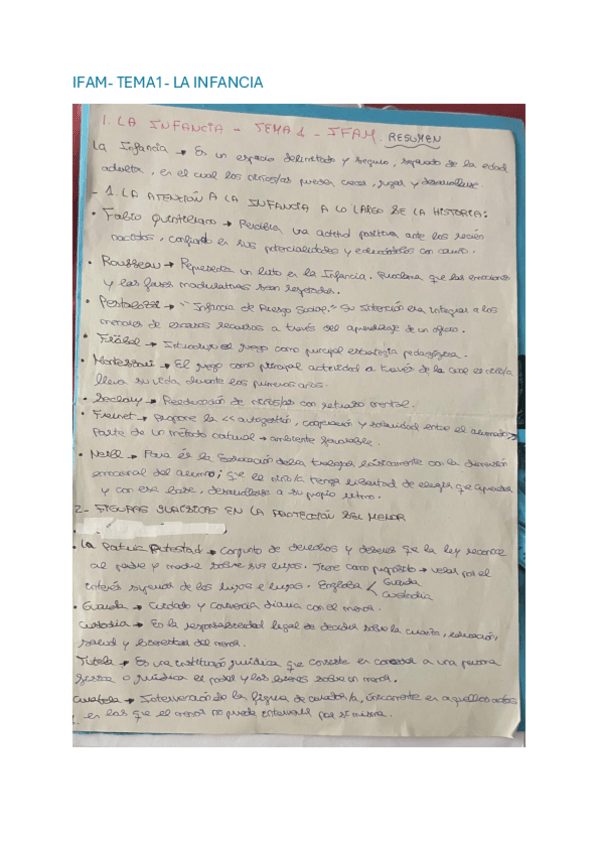 IFAM- TEMA1- LA INFANCIA
1. LA INFANCIA - TEMA 1 - IFAM. RESUMEN
La Infancia → Es un espacio delimitado y seguro, separado de la edad
adulta, en el cual los niños/as pueden crecer, jugar y desarrollarse.
- 1. LA ATENCIÓN A LA INFANCIA A LO LARGO DE LA HISTORIA:
• Fabio Quintiliano → Percibía una actitud positiva ante los recién
nacidos, confiando en sus potencialidades y educándolos con cariño.
• Rousseau → Representa un hito en la Infancia. Proclama que las emociones
y las fases madurativas sean respetadas.
• Pestalozzi → "Infancia de Riesgo Social." Su intención era integrar a los
menores de escasos recursos a través del aprendizaje de un oficio.
• Fröbel → Introdujo el juego como principal estrategia pedagógica.
• Montessori → El juego como principal actividad a través de la cual el niño/a
lleva su vida durante los primeros años.
• Decroly → Reeducación de niños/as con retraso mental.
• Freinet → Propone la << autogestión, cooperación y solidaridad entre el alumnado>>
Parte de un método natural → ambiente favorable.
• Neill → Para él la Educación debía trabajar básicamente con la dimensión
emocional del alumno; que el niño/a tenga libertad de elegir que aprender
y con esa base, desarrollarse a su propio ritmo.
2- FIGURAS JURÍDICAS EN LA PROTECCIÓN DEL MENOR
• La Patria Potestad → Conjunto de derechos y deberes que la ley reconoce
al padre y madre sobre sus hijos. Tiene como propósito → velar por el
interés superior de los hijos e hijas. Engloba < Guarda
Custodia
• Guarda → Cuidado y convivencia diaria con el menor.
Custodia → Es la responsabilidad legal de decidir sobre la crianza, educación,
salud y bienestar del menor.
Tutela → Es una institución jurídica que consiste en conceder a una persona
física o jurídica el poder y los bienes sobre un menor.
Curatela → Intervención de la figura de curador/a, únicamente en aquellos actos
en los que el menor no puede intervenir por sí mismo.